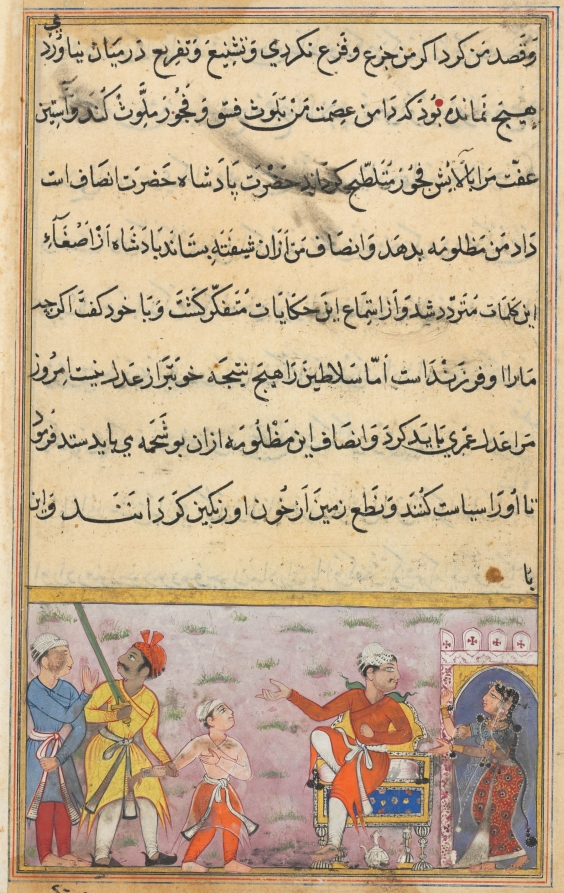 وقصد من کرد اکر من جزع و فزع نکردی و تشنیع و تفریع درمیان نیاوردی
هیچ نمانده بود که دامن عصمت من بلوث فسق و فجور ملوث کند و آستین
عفت مرا بآلایش فجور متلطخ کرداند حضرت پادشاه حضرت انصاف است
داد من مظلومه بدهد وانصاف من ازان شیفته بستاند پادشاه از اصغاء
این کلمات متردد شد و از استماع این حکایات متفکر کشت و با خود کفت اکرچه
مارا او فرزند است اما سلاطین را هیچ نتیجه خوبتر از عدل نیست امروز
مرا عدل عمری باید کرد وانصاف این مظلومه ازان بوشحمه می باید ستد فرمود
تا او را سیاست کنند و نطع زمین از خون او رنکین کردانند واین
با